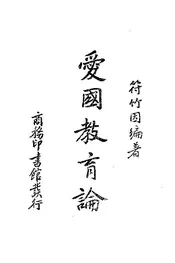 符竹因編著
愛國教育論
商務印書館發行